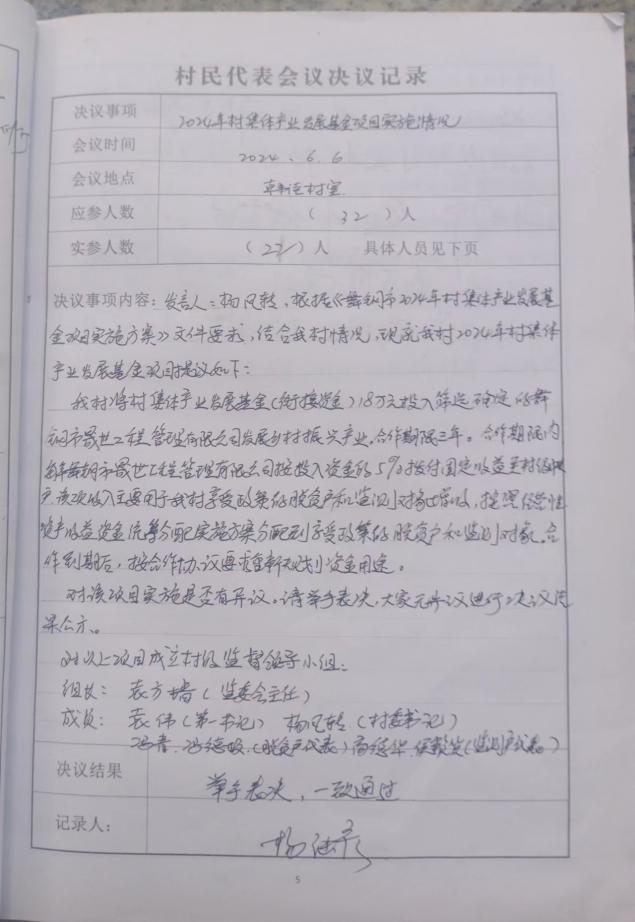 村民代表会议决议记录
决议事项 2024年村集体产业发展基金项目实施情况
会议时间 2024、6.6
会议地点 村室
应参人数 （32）人
实参人数 （27）人 具体人员见下页
决议事项内容：发言人：杨风转，根据《舞钢市2024年村集体产业发展基
金项目实施方案》文件要求，结合我村情况，现就我村2024年村集体
产业发展基金项目提议如下：
我村将村集体产业发展基金（衔接资金）18万元投入筛选确定的舞
钢市晟世工程管理有限公司发展乡村振兴产业，合作期限三年。合作期限内
舞钢市晟世工程管理有限公司按投入资金的5%拨付固定收益至村级账
户，该项收入主要用于我村享受政策的脱贫户和监测对象增收，按照经营性
资产收益资金统筹分配实施方案分配到享受政策的脱贫户和监测对象。合
作到期后，按合作协议要求重新规划资金用途。
对该项目实施是否有异议。请举手表决，大家无异议进行决议结
果公示。
对以上项目成立村级监督领导小组：
组长：袁方增（监委会主任）
成员：袁伟（第一书记） 杨风转（村委书记）
冯青、冯德 （脱贫户代表） （监测户代表）
决议结果 举手表决，一致通过
记录人： 杨
5